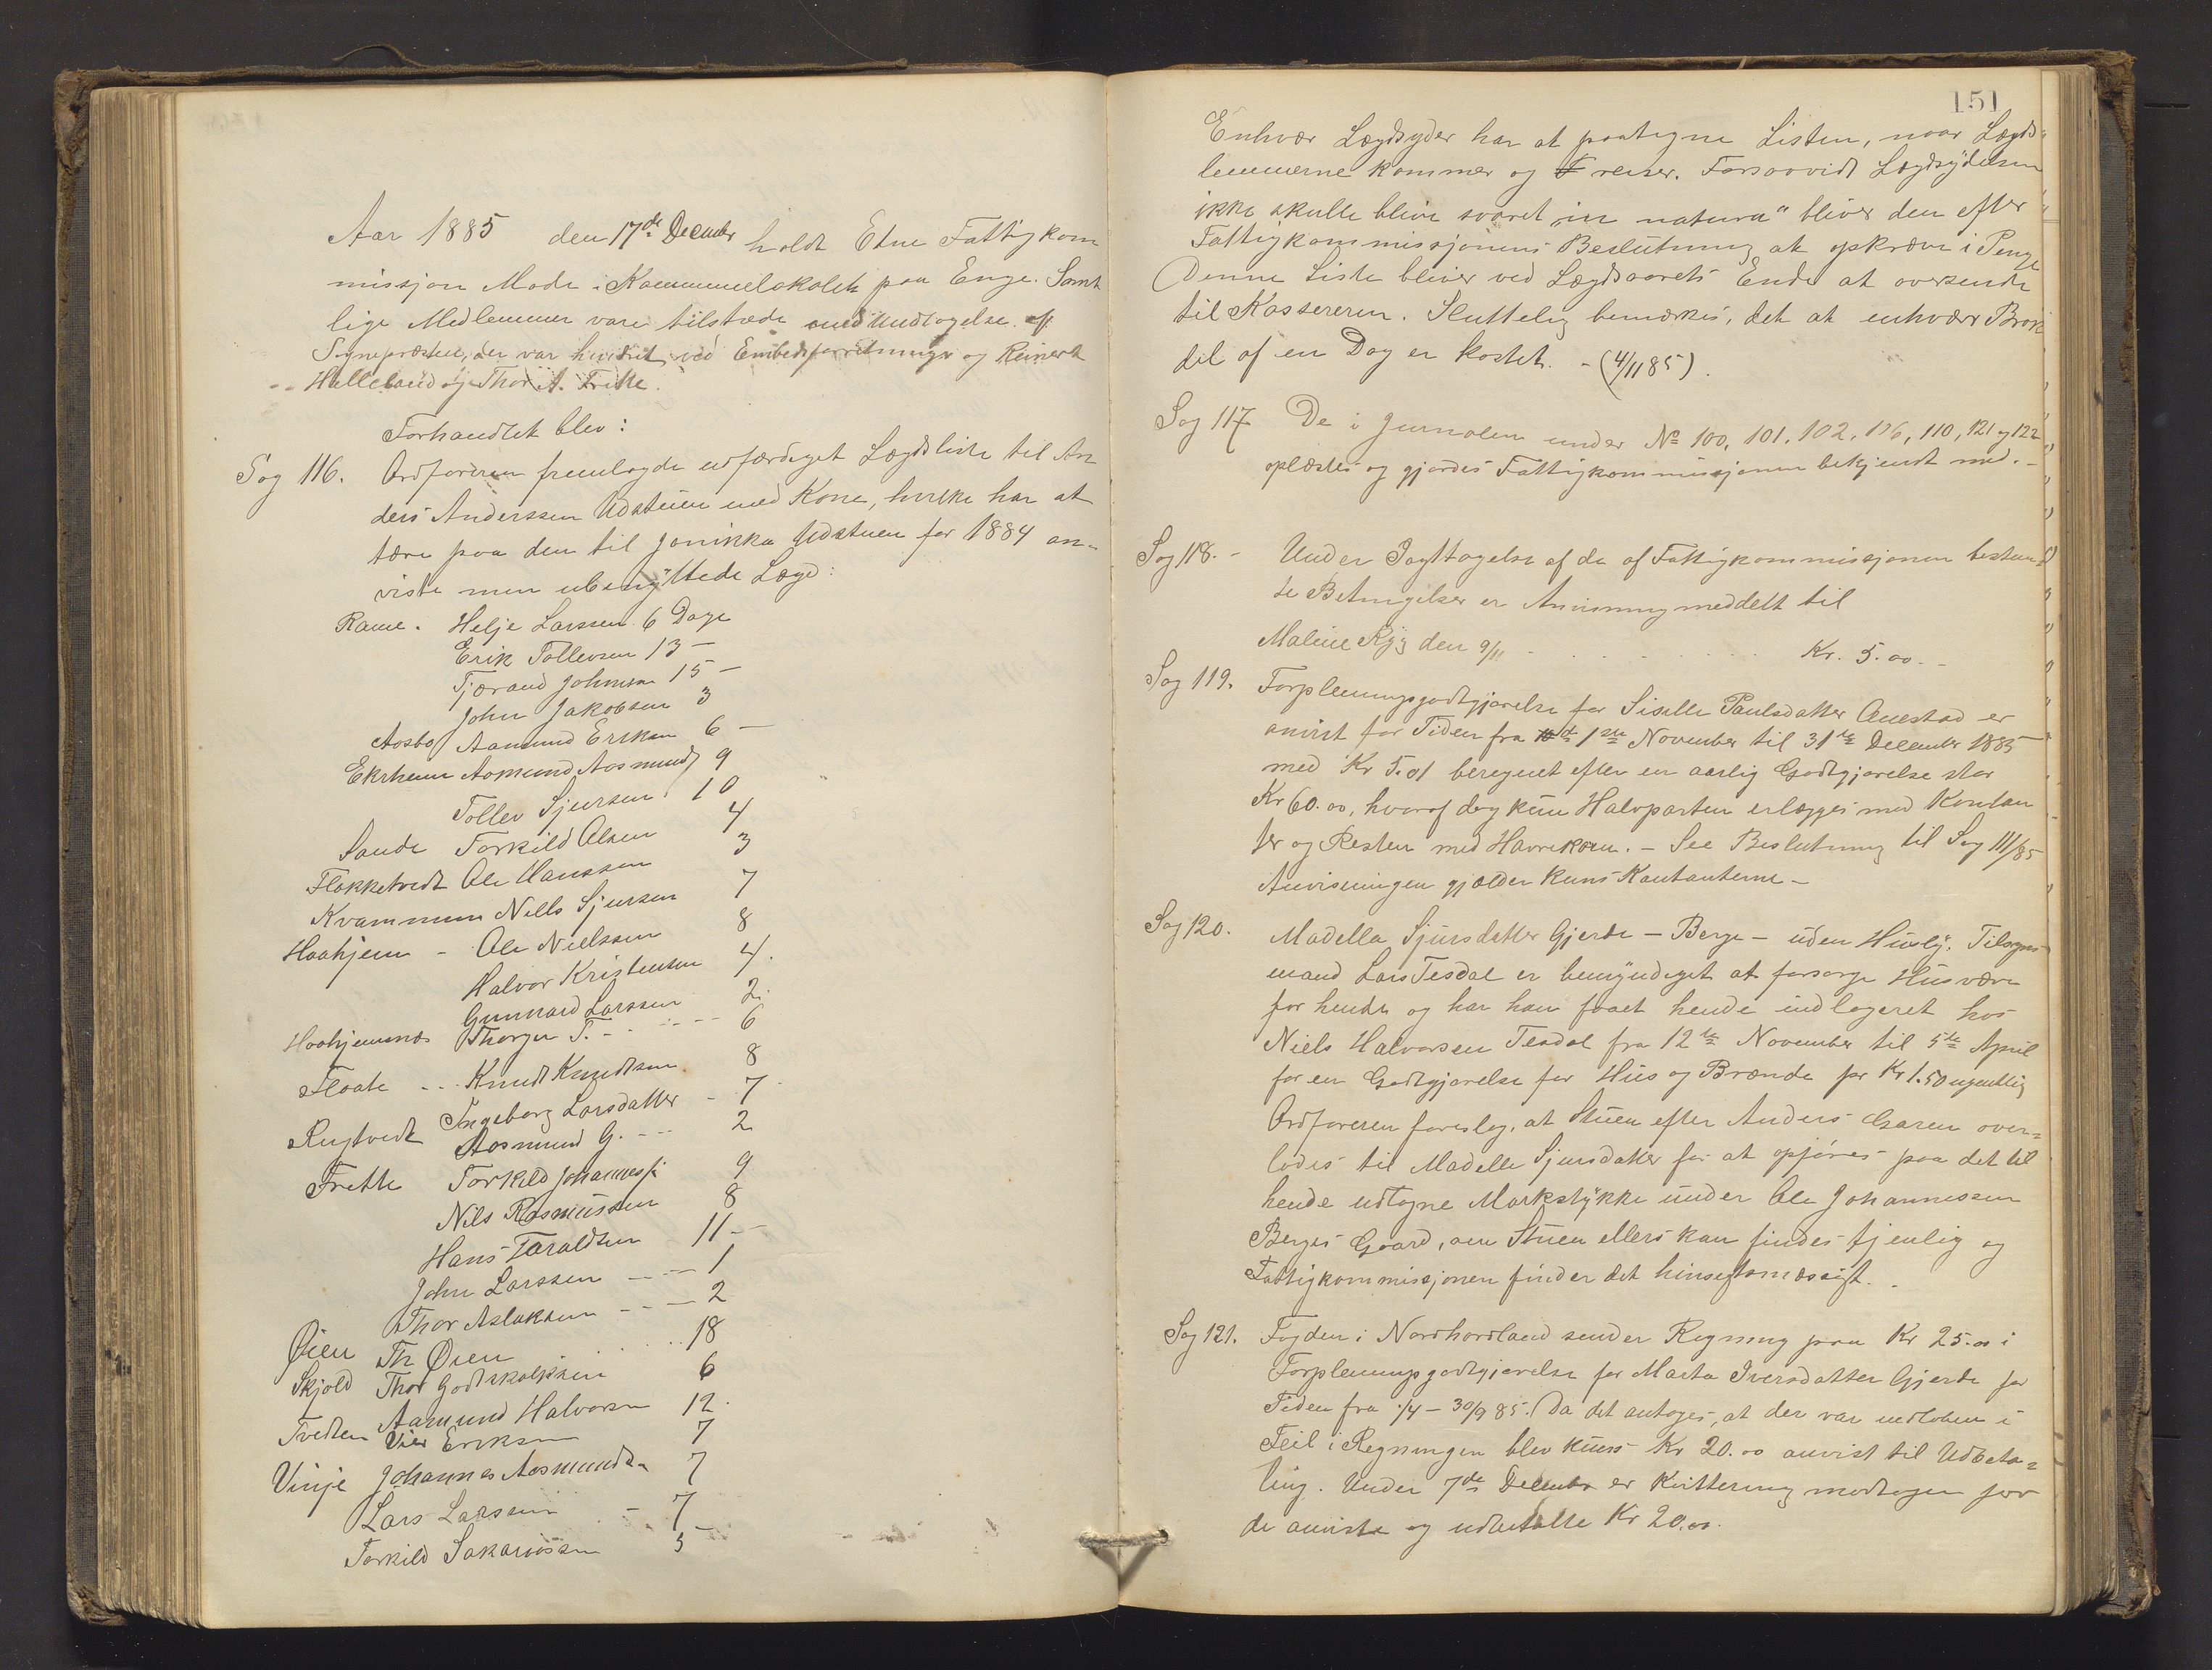 Aar 1885 den 17de December holdt Etne Fattigkom
missjon Møde i Kommunelokalet paa Enge. Samt
lige Medlemmer vare tilstæde med Undtagelse af
Sognepræsten, der var hindret ved Embedsforretninger og Reinert
Helleland og Thor A. Frette.
Forhandlet blev:
Sag 116. Ordføreren fremlagde udfærdiget Lægdsliste til An
ders Anderssen Udstuen med Kone, hvilke har at
tære paa den til Jonikka Udstuen for 1884 an-
viste men ubenyttede Lægd:
Rame. Helje Larssen. 6 Dage
Erik Tollevsen 13 -
Tjørand Johnsen 15 -
John Jakobsen 3
Aosbø Aamund Eriksen 6 -
Ekrheim Aomund Aosmunds 9
Tollev Sjursen 10
Sande Torkild Olsen 4
Flokketvedt Ole Hanssen 3
Kvammen Nells Sjursen 7
Haahjem - Ole Nielssen 8
Halvor Kristensen 4.
Gunnard Larssen 2.
Haahjemsnæs Thorger T. - - - - 6
Floate - - - Knudt Knudtsen 8
Rugtvedt Ingeborg Larsdatter - 7
Aosmund G. - - - 2
Frette Torkild Johanness 9
Nils Rasmussen 8
Hans Taraldsen 11 -
John Larssen - - - 1
Thor Aslaksen - - - 2
Øien Th Øien 18
Skjold Thor Godtskalksen 6
Aamund Halvorsen 12.
Tvedten Vier Eriksen 7
Vinje Johannes Aosmundsen 7
Lars Larssen - 7
Torkild Sakariassen 5
151
Enhvær Lægdsyder har at paategne Listen, naar Lægds
lemmerne kommer og reiser. Forsaavidt Lægdsydelsen
ikke skulle blive svaret "in natura" bliver den efter
Fattigkommissjonens Beslutning at opkræve i Penge
Denne Liste bliver ved Lægdsaarets Ende at oversende
til Kassereren. Sluttelig bemærkes, det at enhvær Brøk
del af en Dag er kostet. - (4/11 85).
Sag 117 De i Jurnalen under No 100, 101, 102, 106, 110, 121 og 122
oplæstes og gjordes Fattigkommissjonen bekjendt med. -
Sag 118. - Under Iagttagelse af de af Fattigkommissjonen bestem
te Betingelser er Anvisning meddelt til
Maline Ryg den 9/11 - . . . . . . . Kr. 5.00. -
Sag 119. Forpleiningsgodtgjørelse for Siselle Paulsdatter Anestad er
anvist for Tiden fra 1ste November til 31te December 1885
med Kr 5.01 beregnet efter en aarlig Godtgjørelse stor
Kr 60.00, hvoraf dog kun Halvparten erlægges med Kontan
ter og Resten med Havrekorn. - See Beslutning til Sag 111/85
Anvisningen gjælder kuns Kontanterne -
Sag 120. Madella Sjursdatter Gjerde - Berge - uden Husly. Tilsyns
mand Lars Tesdal er bemyndiget at forsørge Husvære
for hende og har han faaet hende indlogeret hos
Niels Halvorsen Tesdal fra 12te November til 5te April
for en Godtgjørelse for Hus og Brænde pr Kr 1.50 ugentlig
Ordføreren foreslog, at Stuen efter Anders Garen over-
lodes til Madelle Sjursdatter for at opføres paa det til
hende udtagne Markstykke under Ole Johannessen
Berges Gaard, om Stuen ellers kan findes tjenlig og
Fattigkommissjonen finder det hinsegtsmæssigt. -
Sag 121. Fogden i Nordhordland sender Regning paa Kr 25.00 i
Forpleiningsgodtgjørelse for Marta Iversdatter Gjerde for
Tiden fra 1/4 - 30/9 85. Da det antoges, at der var indløben i
Feil i Regningen blev kuns Kr 20.00 anvist til Udbeta-
ling. Under 7de December er Kvittering modtagen for
de anviste og udbetalte Kr 20.00.